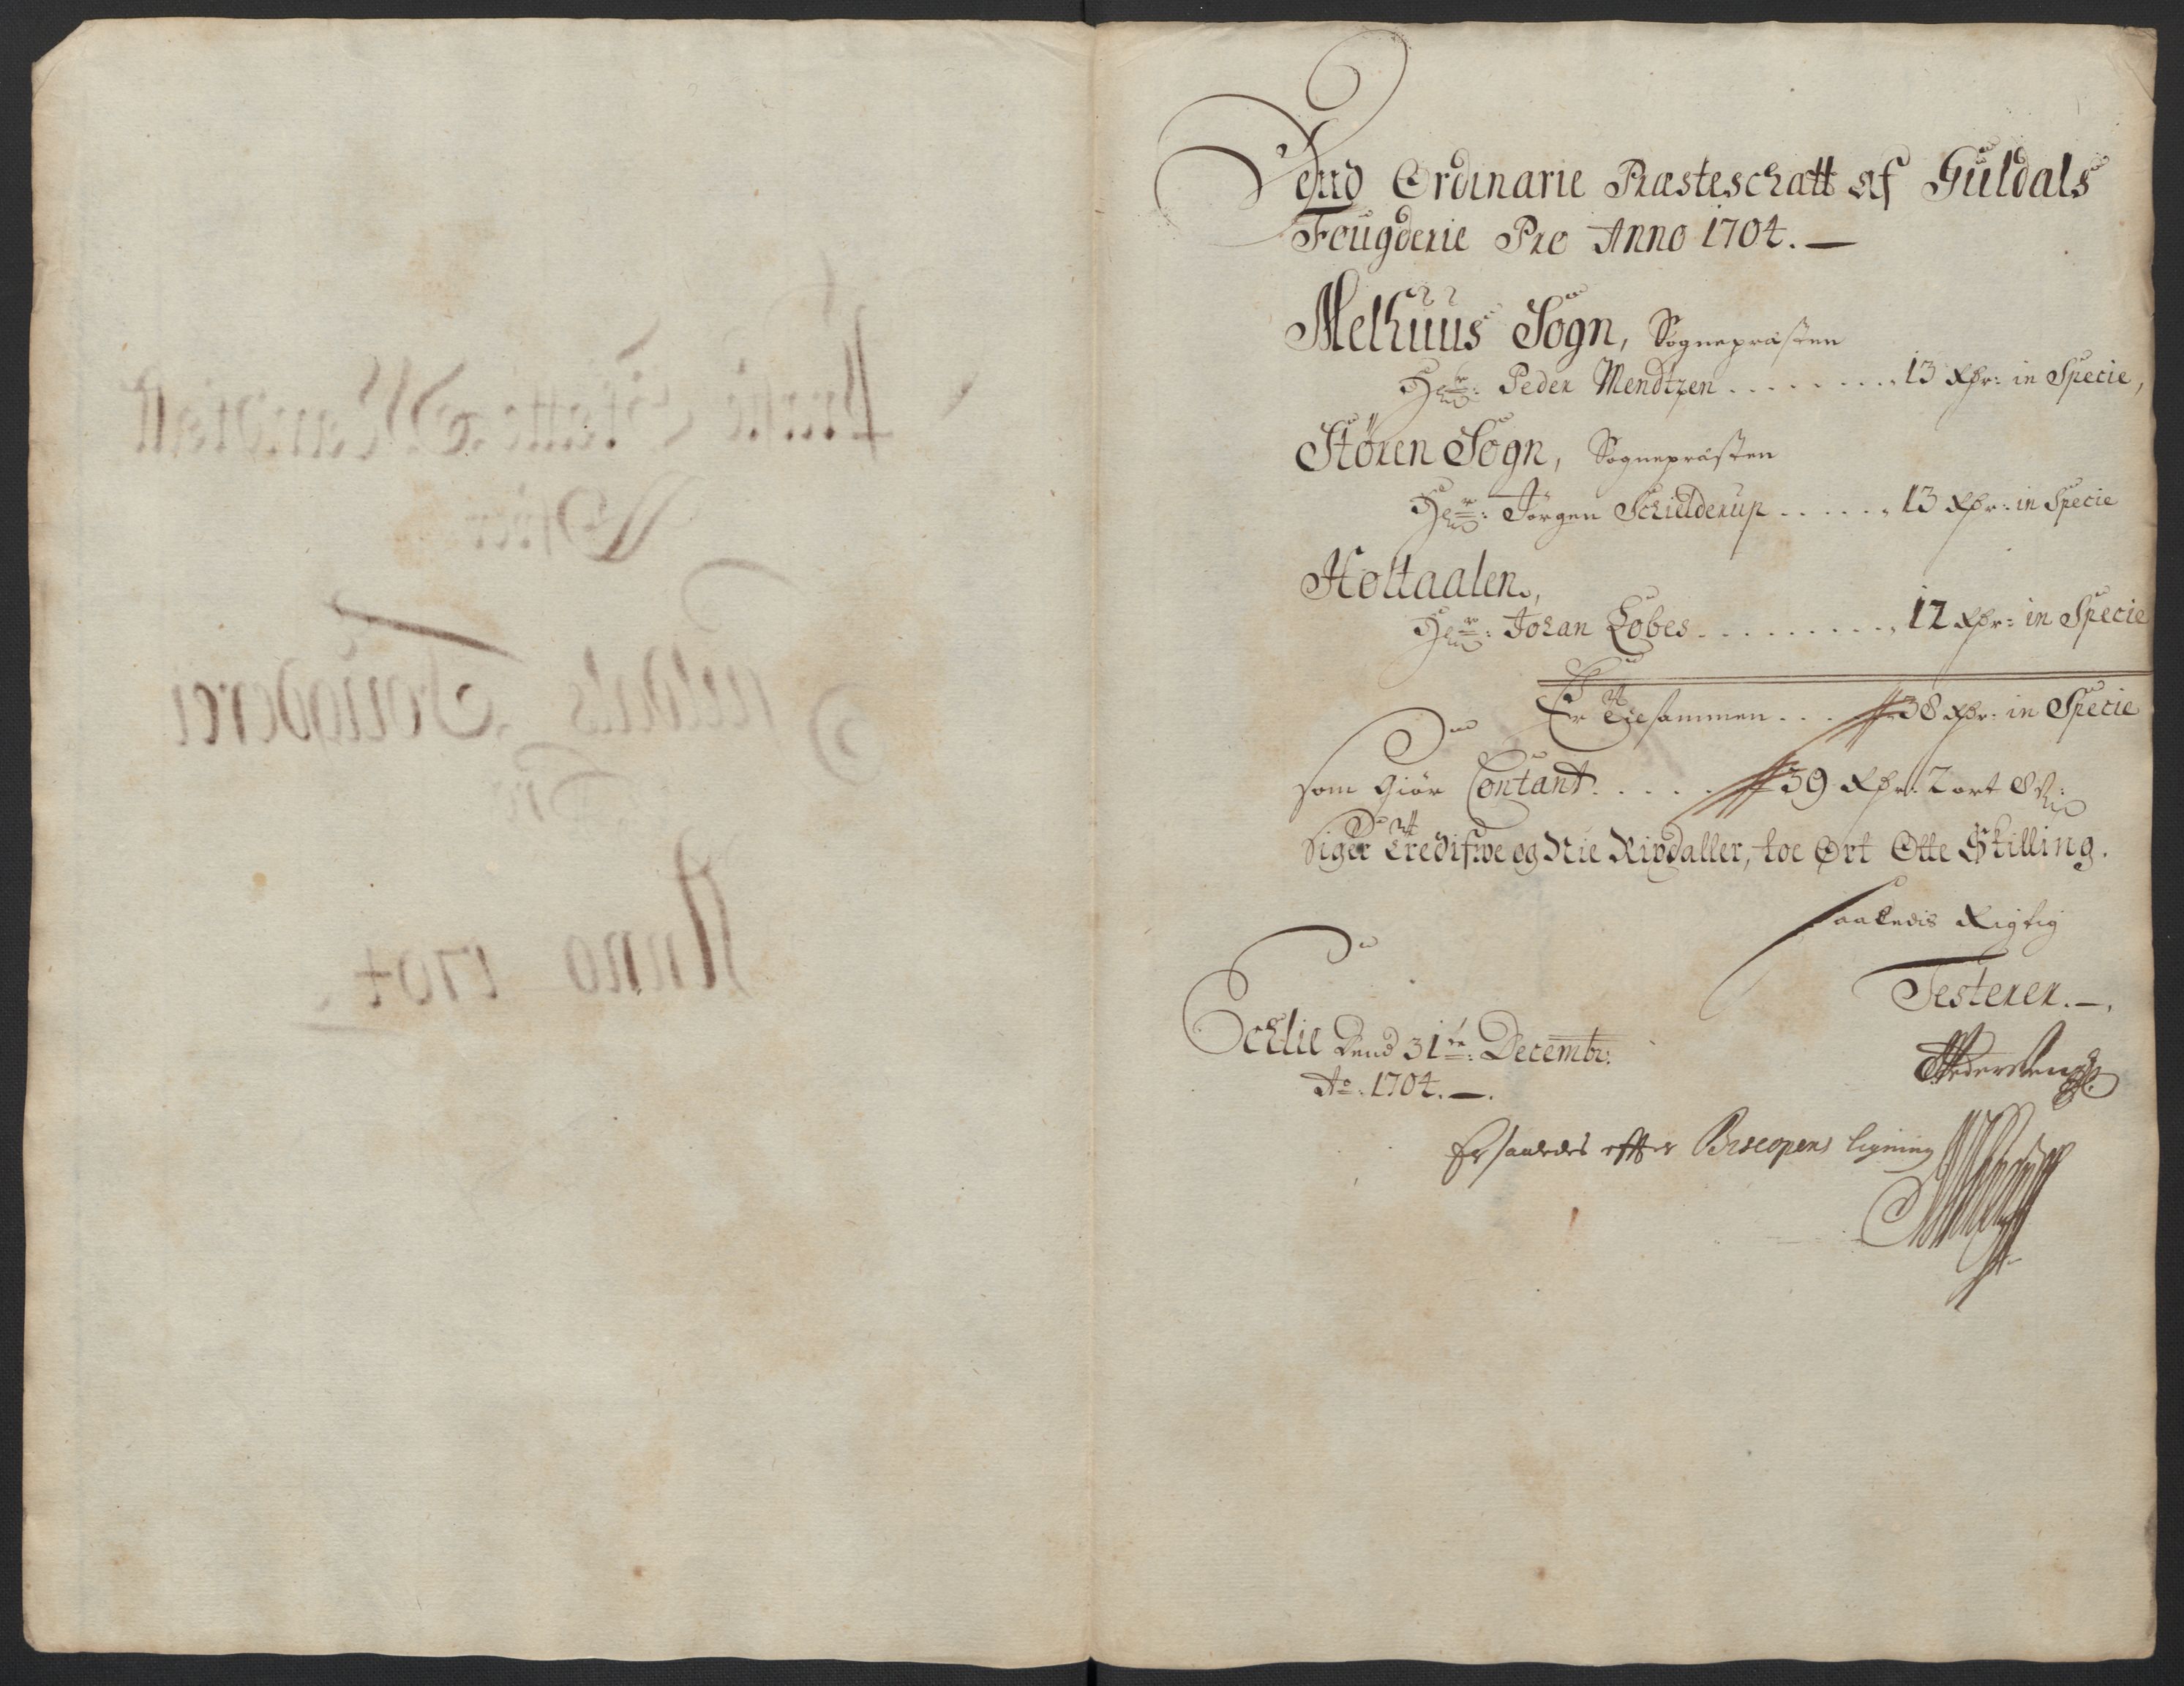 Dend Ordinarie Præsteschatt af Guldals
Fougderie Pro Anno 1704. —
Melhuus Sogn, Sognepræsten
Hr: Peder Mendtzen . . . . . . . . 13 Rdr: in Specie,
Stören Sogn, Sognepræsten
Hr: Jörgen Schielderup . . . . . . 13 Rdr: in Specie
Holtaalen,
Hr: Johan Lobes . . . . . . . . . 12 Rdr: in Specie
Er Tilsammen . . . 38 Rdr: in Specie
som giör Contant . . . . . 39 Rdr: 2 ort 8 s:
Siger Tredifwe og Nie Rixdaller, toe Ort Otte Skilling.
Saaledis Rigtig
Testerer. —.
Dend 31te: Decembr:
Ao: 1704. —.
Er saaledes effter Biscopens ligning
Præste Skatte Mandtall
Ofver
Guldals Fougderi
Anno 1704